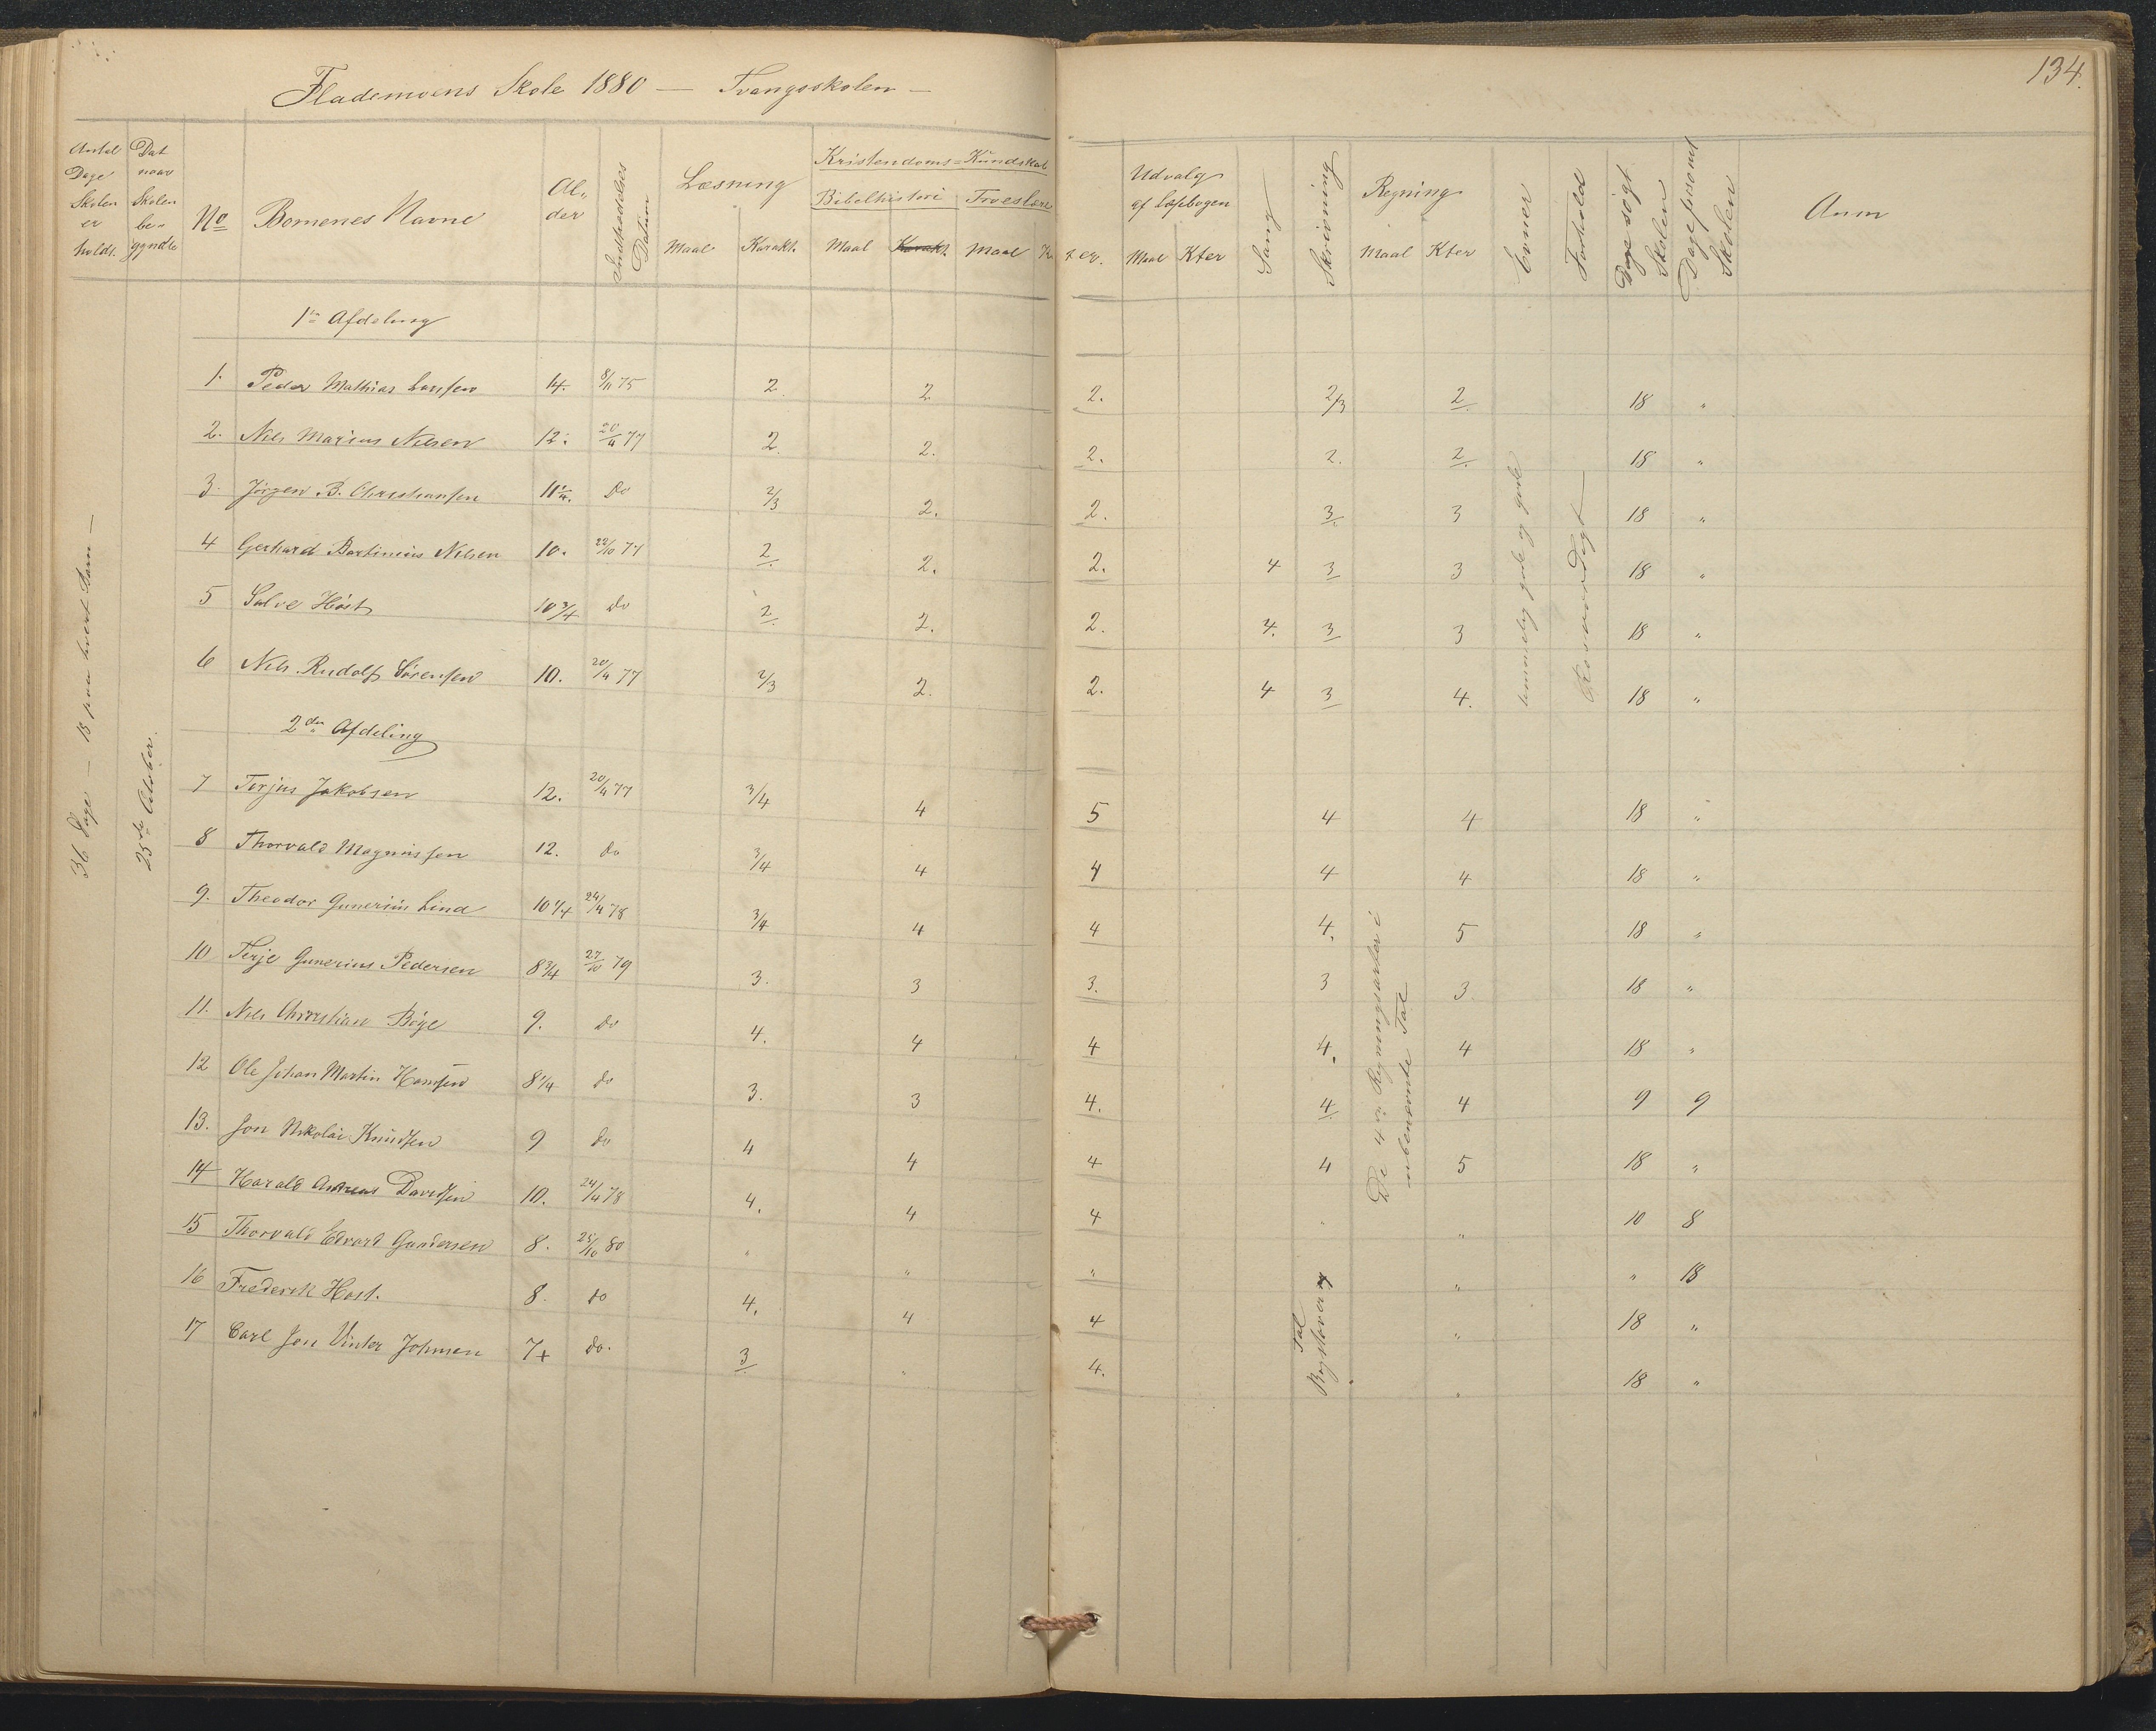 134.
Flademoens Skole 1880 — Tvangsskolen —
Antal Dage Skolen er holdt.
Dat naar Skolen be- gyndte
No
Børnenes Navne
Al- der
Indtrædelses Datum
Læsning
Maal Karakt.
Kristendoms=Kundskab
Bibelhistori
Maal Karakt.
Troeslære
Maal Kter.
Udvalg af Læsebogen
Maal Kter
Sang
Skrivning
Regning
Maal Kter
Evner
Forhold
Dage søgt Skolen
Dage forsømt Skolen
Anm
36 Dage — 18 paa hvert Barn —
25de October.
1ste Afdeling
1. Peder Mathias Larssen 14. 8/11 75 2. 2 2. 2/3 2. 18 "
2. Nils Marius Nilsen 12. 20/4 77 2. 2. 2. 2. 2. 18 "
3. Jörgen B. Christiansen 11 1/4. Do 2/3 2. 2. 3. 3 18 "
4 Gerhard Bertinius Nilsen 10. 22/10 77 2. 2. 2. 4 3 3 18 "
5 Salve Höst 10 3/4 do 2. 2. 2. 4. 3 3 18 "
6 Nils Rudolf Sörensen 10. 20/4 77 2/3 2. 2. 4 3 4. 18 "
temmelig gode og gode
Rosværdigt
2den Afdeling
7 Terjus Jakobsen 12. 20/4 77 3/4 4 5 4 4 18 "
8 Thorvald Magnussen 12. do 3/4 4 4 4 4 18 "
9. Theodor Gunerius Lind 10 1/4 24/4 78 3/4 4 4 4. 5 18 "
10 Terje Gunerius Pedersen 8 3/4 27/10 79 3. 3 3. 3 3 18 "
11. Nils Christian Böye 9. do 4. 4 4 4. 4 18 "
12 Ole Johan Martin Hansen 8 1/4 do 3. 3 4. 4. 4 9 9
13. Jon Nikolai Knudsen 9 do 4 4 4 4 5 18 "
14 Harald Andreas Davidsen 10. 24/4 78 4. 4 4 " " 10 8
15 Thorvald Edvard Gundersen 8. 25/10 80 " " " " " 18
16 Frederik Høst. 8. do 4. 4 4 " 18 "
17 Carl Jon Vinter Johnsen 7+ do. 3 " 4. " 18 "
De 4re Regningsarter i ubenævnte Tal
Bogstaver og Tal